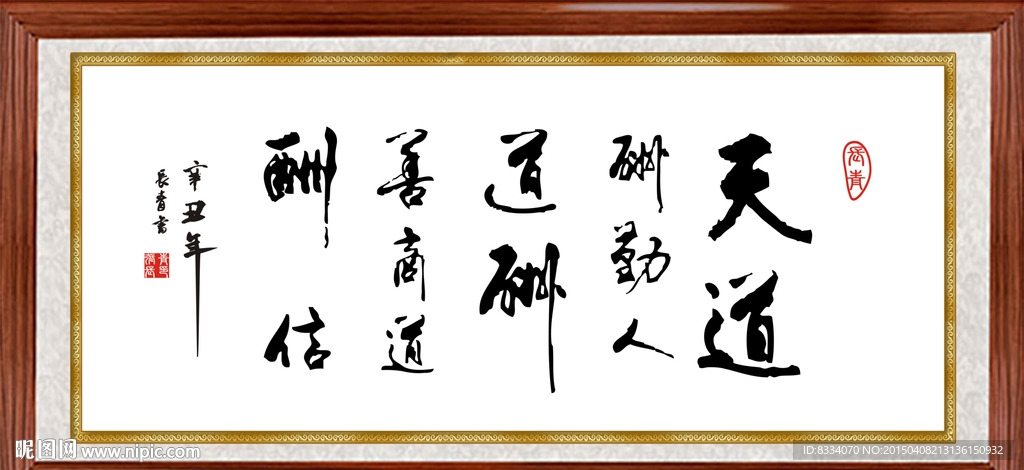 長青
天道
酬勤人
道酬
善商道
酬信
辛丑年
長青書
昵图网 www.nipic.com
ID:8334070 NO:20150408213136150932